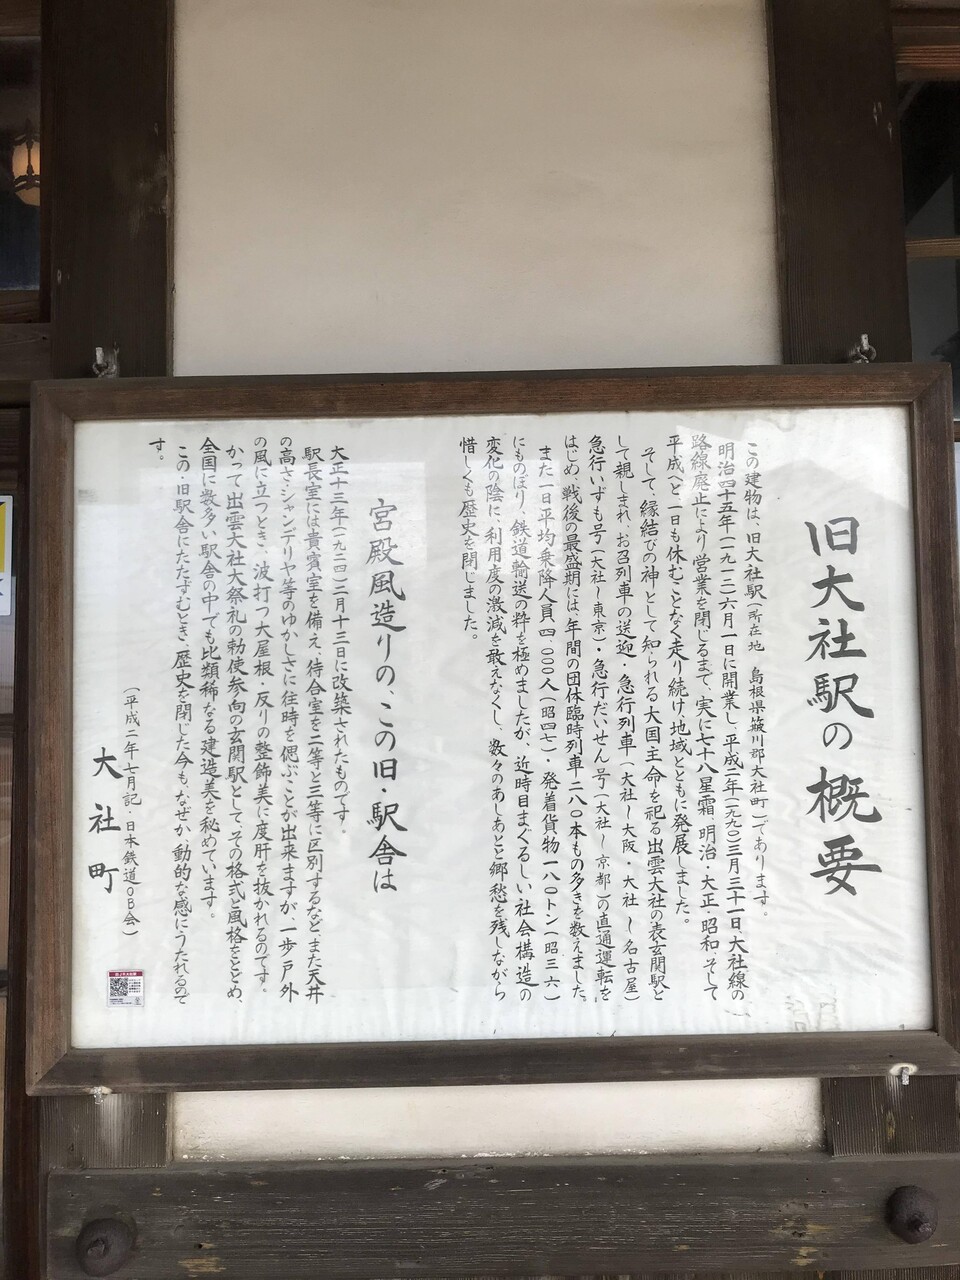 旧大社駅の概要
この建物は、旧大社駅(所在地 島根県簸川郡大社町)であります。
明治四十五年(一九一二)六月一日に開業し、平成二年(一九九〇)三月三十一日、大社線の
路線廃止により営業を閉じるまで、実に七十八星霜、明治・大正・昭和、そして
平成へと一日も休むことなく走り続け、地域とともに発展しました。
そして、縁結びの神として知られる大国主命を祀る出雲大社の表玄関駅と
して親しまれ、お召列車の送迎・急行列車(大社〜大阪・大社〜名古屋)
急行いずも号(大社〜東京)・急行だいせん号(大社〜京都)の直通運転を
はじめ、戦後の最盛期には、年間の団体臨時列車二八〇本もの多きを数えました。
また一日平均乗降人員四、〇〇〇人(昭四七)・発着貨物一八〇トン(昭三六)
にものぼり、鉄道輸送の粋を極めましたが、近時目まぐるしい社会構造の
変化の陰に、利用度の激減を敢えなくし、数々のあしあとと郷愁を残しながら
惜しくも歴史を閉じました。
宮殿風造りの、この旧・駅舎は
大正十三年(一九二四)二月十三日に改築されたものです。
駅長室には貴賓室を備え、待合室を二等と三等に区別するなど、また天井
の高さ・シャンデリヤ等のゆかしさに往時を偲ぶことが出来ますが、一歩戸外
の風に立つとき、波打つ大屋根・反りの整飾美に度肝を抜かれるのです。
かって出雲大社大祭礼の勅使参向の玄関駅として、その格式と風格をとどめ、
全国に数多い駅舎の中でも比類稀なる建造美を秘めています。
この・旧駅舎にたたずむとき、歴史を閉じた今も、なぜか、動的な感にうたれるので
す。
(平成二年七月記・日本鉄道OB会)
大社町